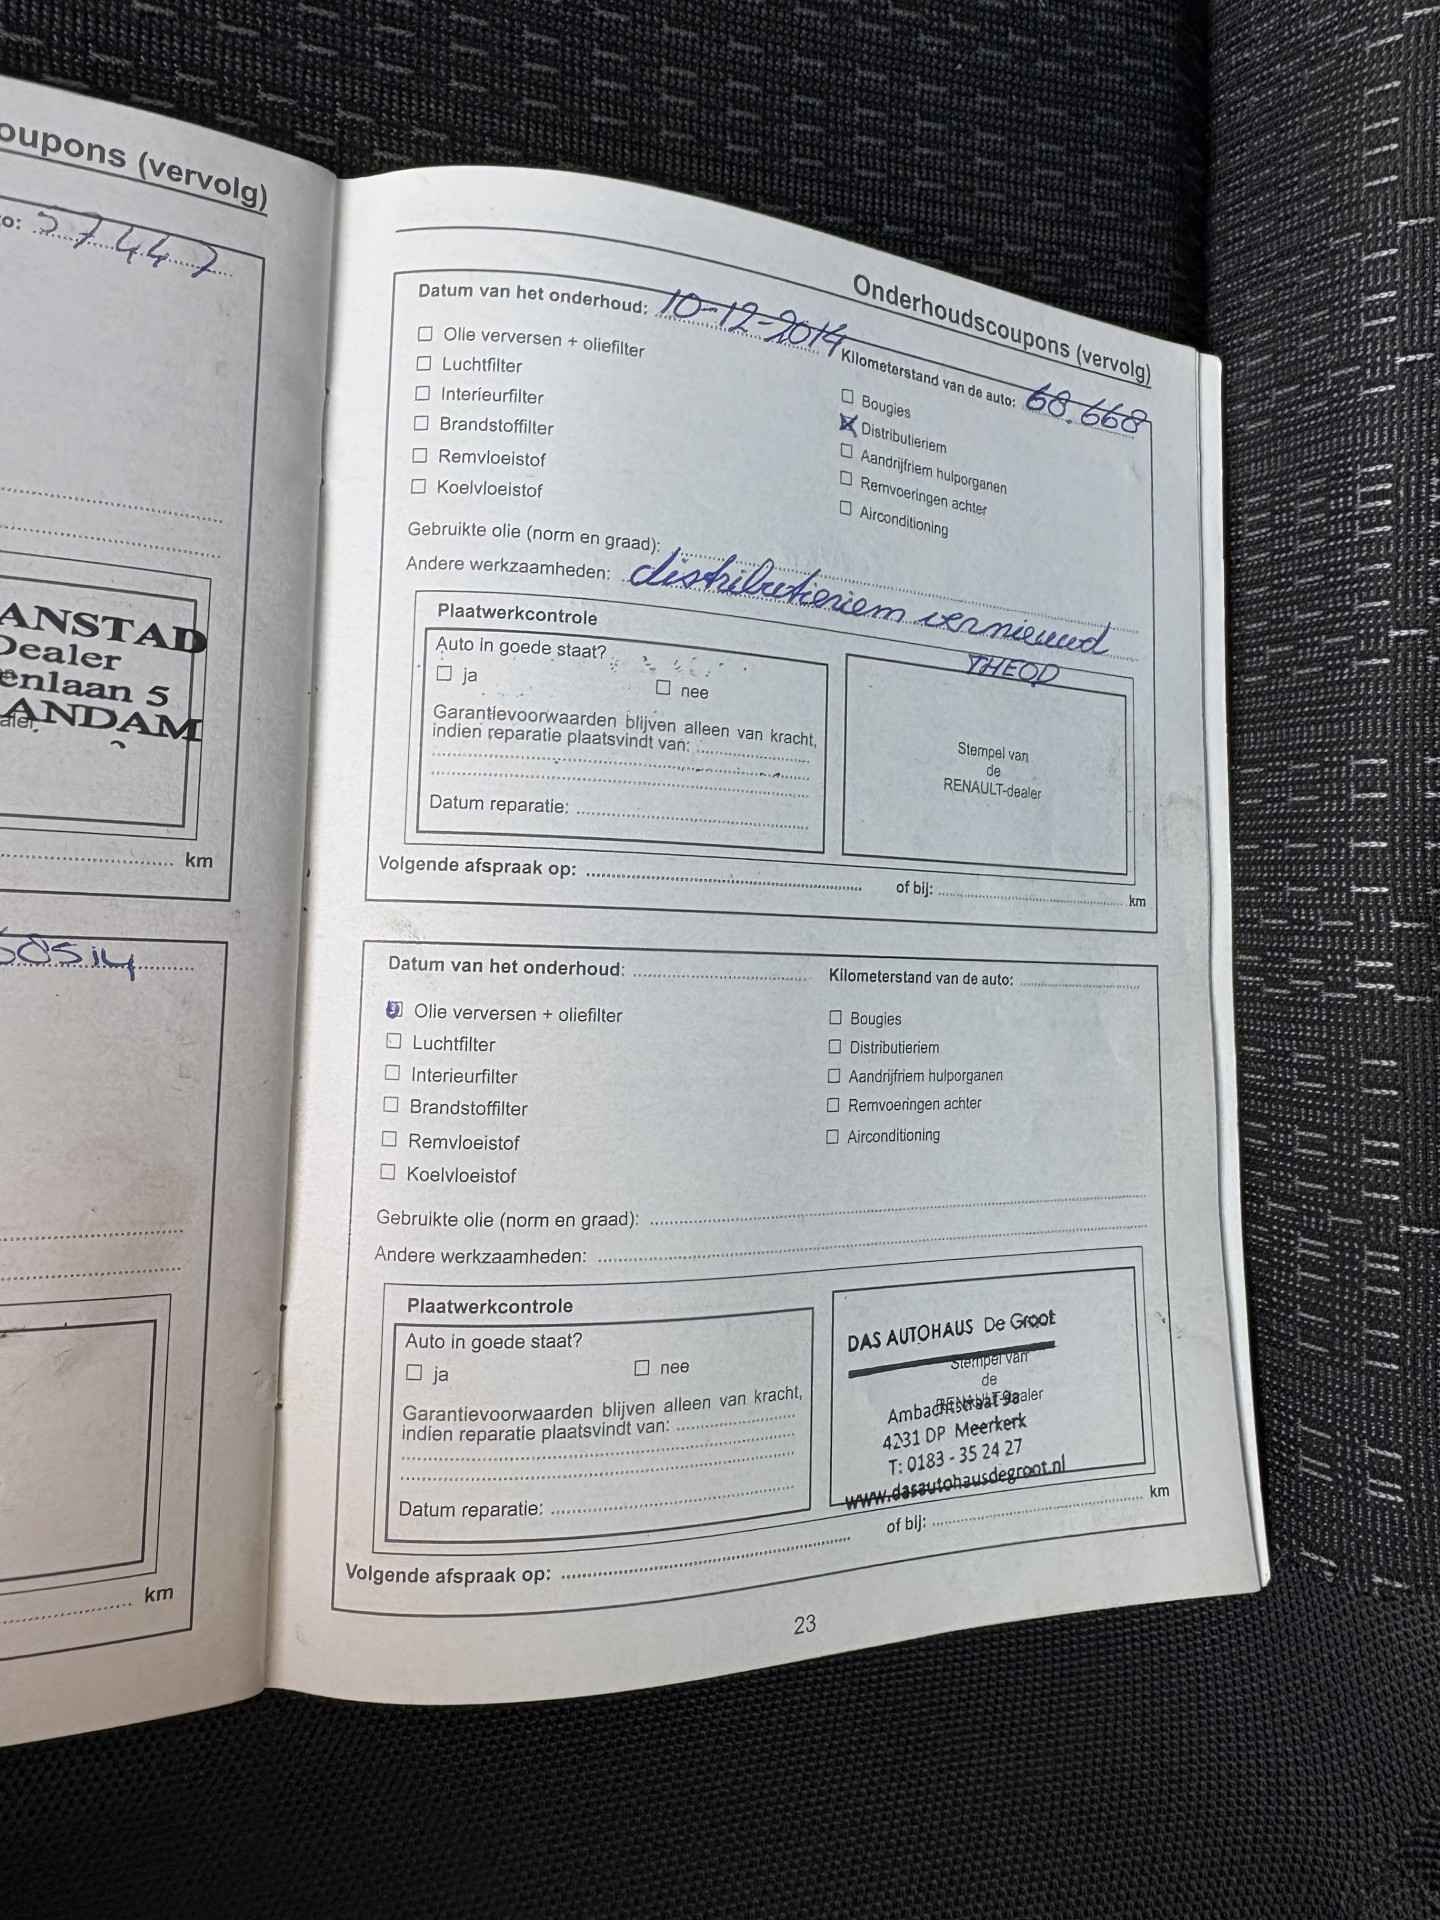 oupons (vervolg)
to: 57447
ANSTAD
Dealer
enlaan 5
ANDAM
aler
km
58514
km
Onderhoudscoupons (vervolg)
Datum van het onderhoud: 10-12-2014 Kilometerstand van de auto: 68.668
Olie verversen + oliefilter
Luchtfilter
Interieurfilter
Brandstoffilter
Remvloeistof
Koelvloeistof
Bougies
Distributieriem
Aandrijfriem hulporganen
Remvoeringen achter
Airconditioning
Gebruikte olie (norm en graad):
Andere werkzaamheden: distributieriem vernieuwd
THEOD
Plaatwerkcontrole
Auto in goede staat?
ja nee
Garantievoorwaarden blijven alleen van kracht,
indien reparatie plaatsvindt van:
Datum reparatie:
Stempel van
de
RENAULT-dealer
Volgende afspraak op: of bij: km
Datum van het onderhoud: Kilometerstand van de auto:
Olie verversen + oliefilter
Luchtfilter
Interieurfilter
Brandstoffilter
Remvloeistof
Koelvloeistof
Bougies
Distributieriem
Aandrijfriem hulporganen
Remvoeringen achter
Airconditioning
Gebruikte olie (norm en graad):
Andere werkzaamheden:
Plaatwerkcontrole
Auto in goede staat?
ja nee
Garantievoorwaarden blijven alleen van kracht,
indien reparatie plaatsvindt van:
Datum reparatie:
DAS AUTOHAUS De Groot
Stempel van
de
RENAULT-dealer
Ambachtstraat 9a
4231 DP Meerkerk
T: 0183 - 35 24 27
www.dasautohausdegroot.nl
Volgende afspraak op: of bij: km
23